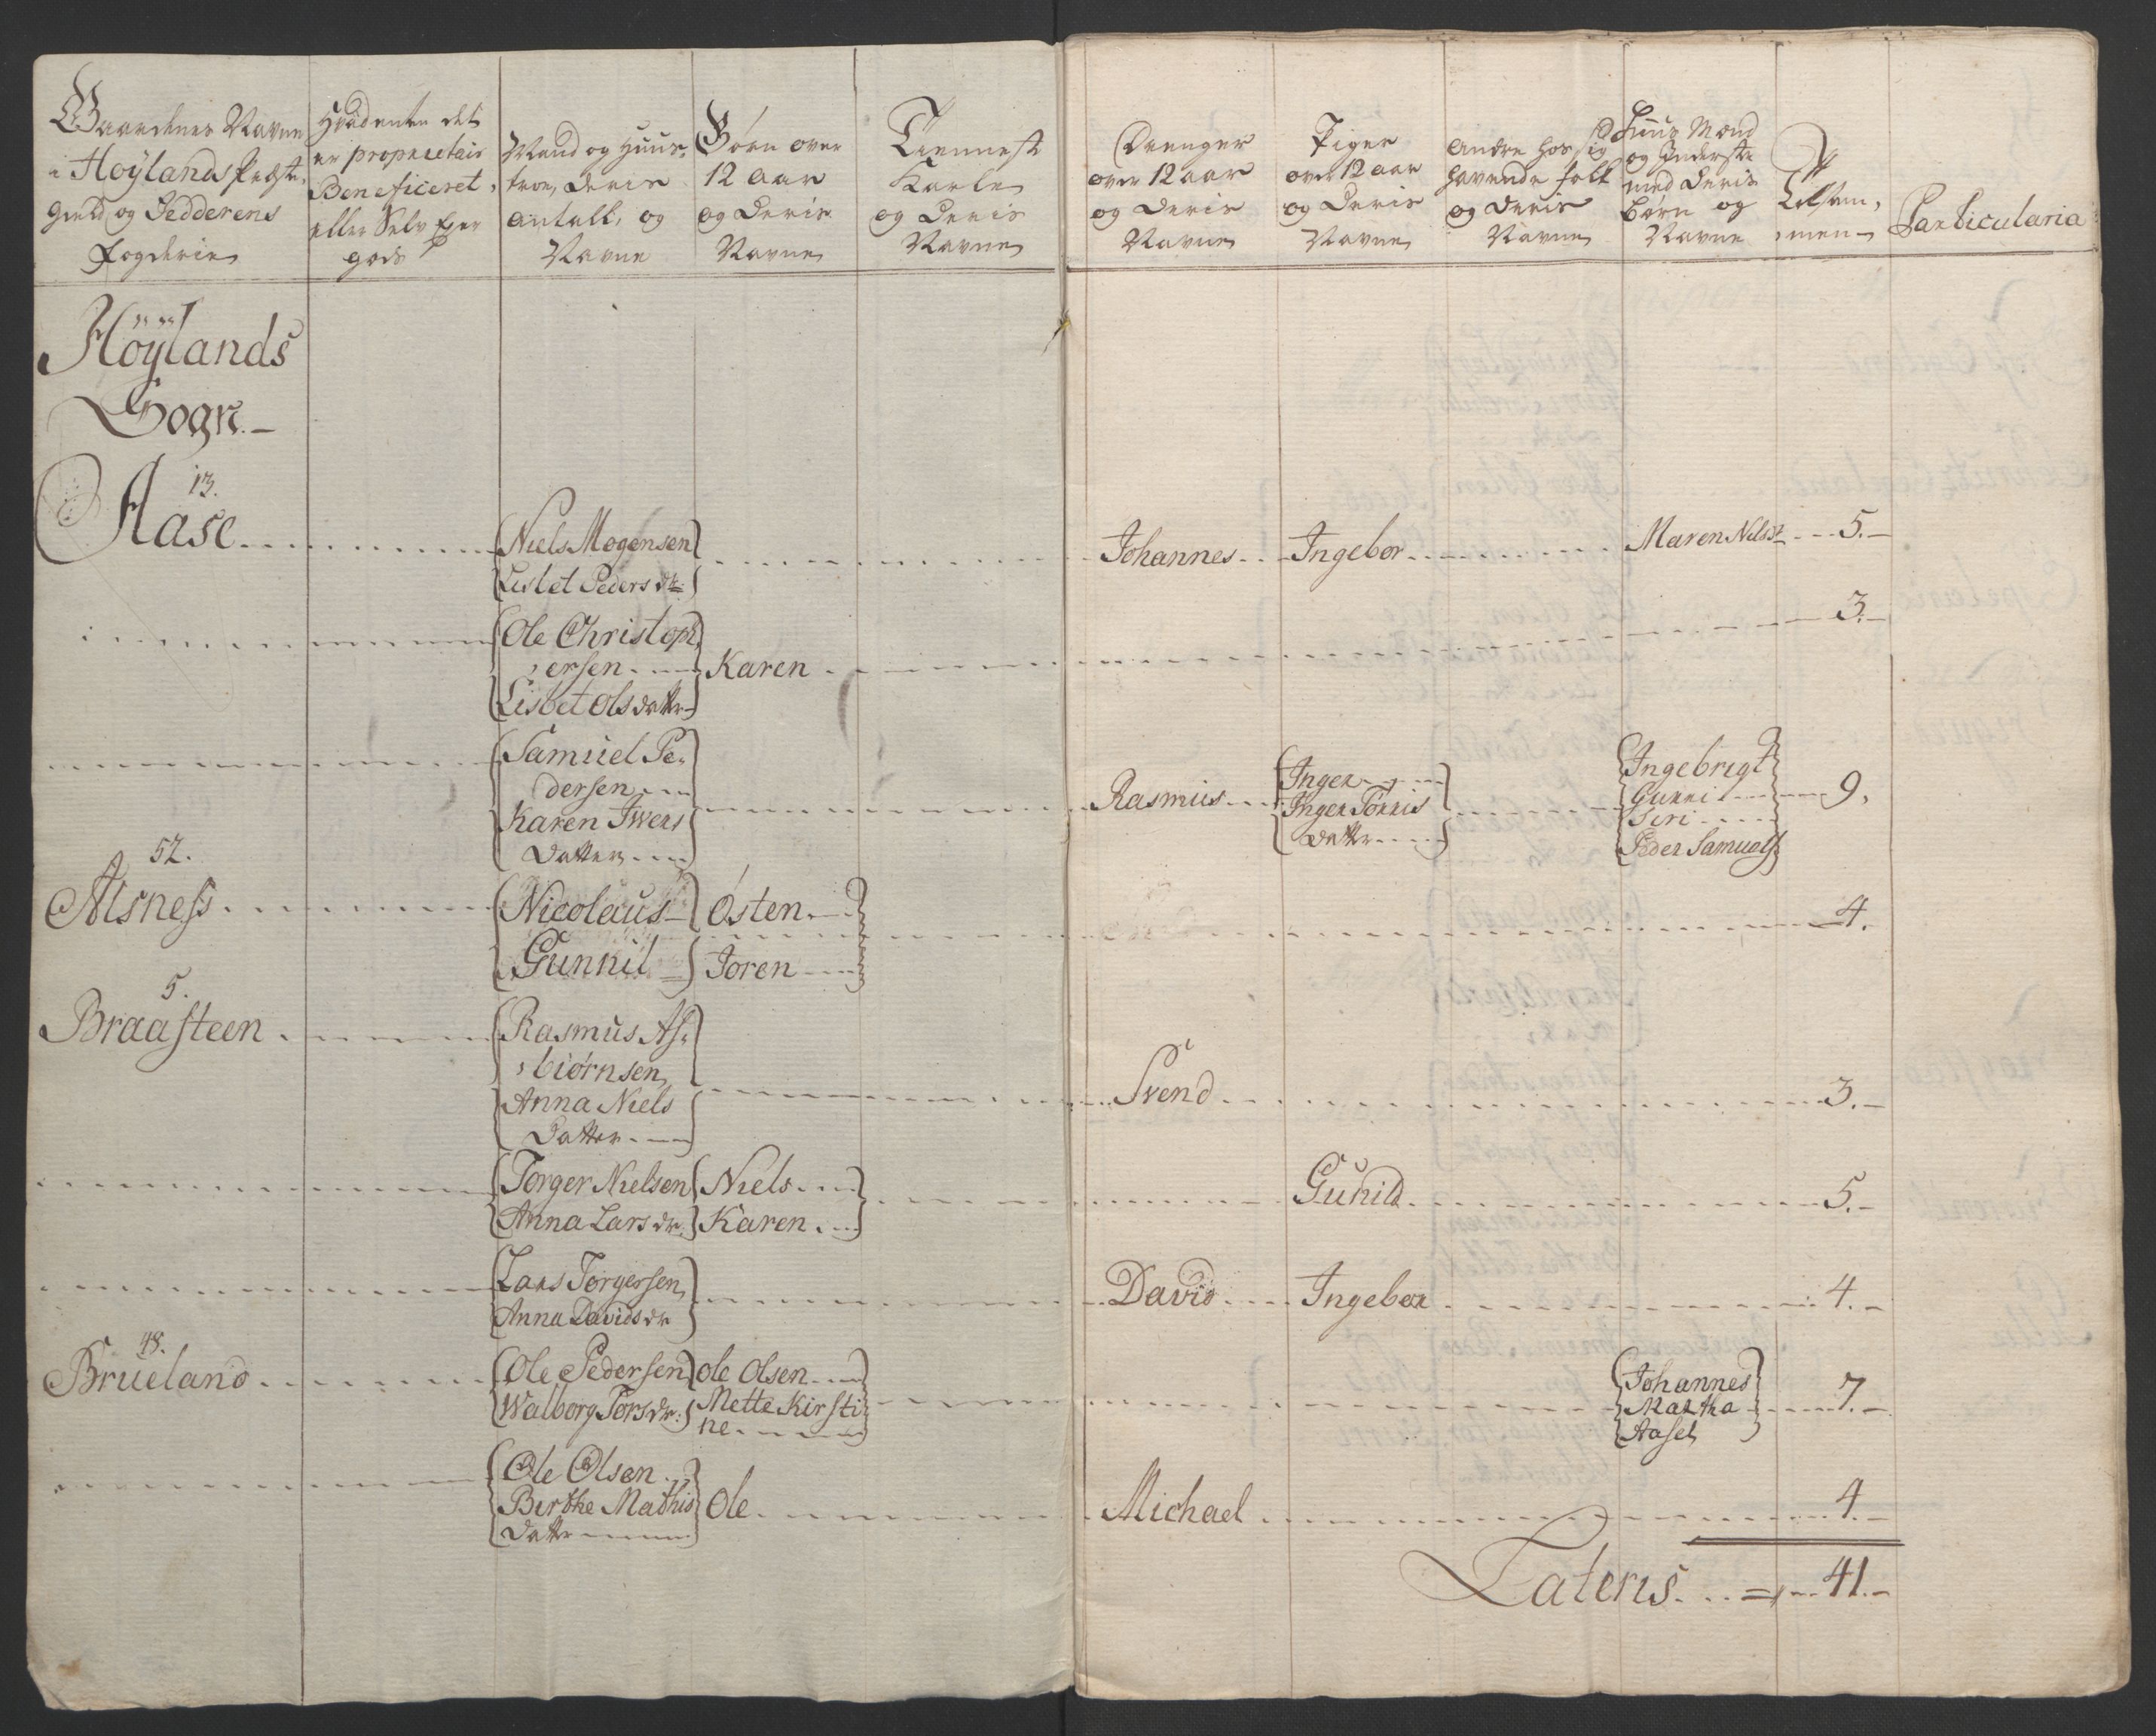 Gaardenes Navne
i Hoÿlands Præste,
gield og Jedderens
Fogderie
Hvad enten det
er proprietair
Beneficeret,
eller Selv Eyer
gods
Mand og Huus,
troe, deris
antall, og
Navne
Børn over
12 aar
og Deris
Navne
Tienneste
Karle
og Deris
Navne
Drenger
over 12 aar
og Deris
Navne
Piger
over 12 aar
og Deris
Navne
Andre hos sig
havende folk
og Deris
Navne
Huus Mænd
og Inderste
med Deris
børn og
Navne
Tilsam,
men
Particularia
Höÿlands
Sogn.
13.
Aase
Niels Mogensen
Lisbet Peders dtr
Johannes
Ingebor
Maren Nilsdr
5.
Ole Christoph,
ersen
Lisbet Olsdattr
Karen
3.
Samuel Pe,
dersen
Karen Iwers
Datter
Rasmus
Inger
Inger Tønnis
Dattr
Ingebrigt
Gunni
Siri
Peder Samuels
9.
52.
Alsness
Nicolaus
Gunnil
Østen
Joren
4.
5.
Braasteen
Rasmus As,
biørnsen
Anna Niels
Datter
Svend
3.
Torger Nielsen
Anna Lars dr.
Niels
Karen
Gunild
5.
Lars Torgersen
Anna Davids dr
David
Ingebor
4.
48.
Brueland
Ole Pedersen
Walborg Tors dr.
Ole Olsen
Mette Kirsti,
ne
Johannes
Martha
Aasel
7.
Ole Olsen
Birthe Mathis
Dattr
Ole
Michael
4.
Lateris 41.